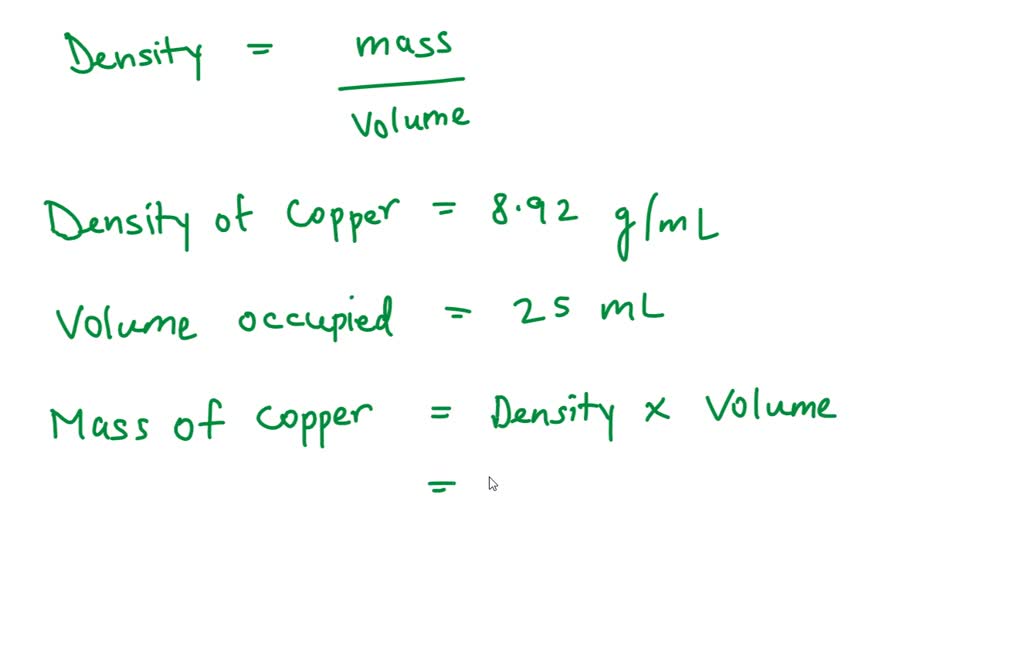 Density = mass
volume
Density of copper = 8.92 g/mL
Volume occupied = 25 mL
Mass of copper = Density x Volume
=